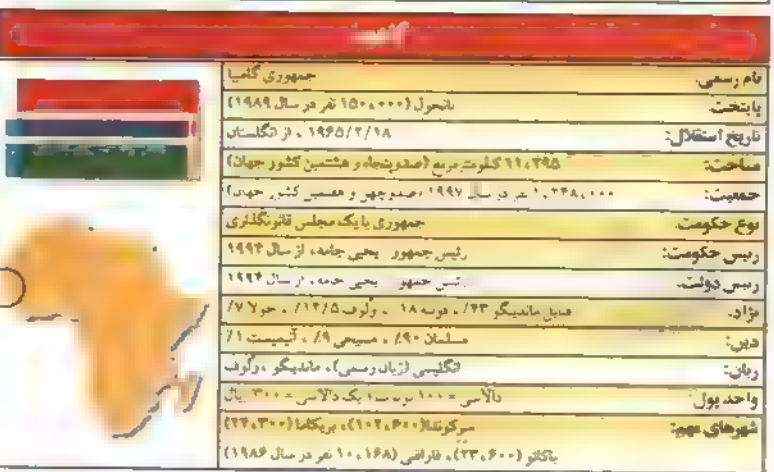 گامبیا
نام رسمی: جمهوری گامبیا
پایتخت: بانجول (۱۵۰،۰۰۰ نفر در سال ۱۹۸۹)
تاریخ استقلال: ۱۹۶۵/۲/۱۸ ، از انگلستان
مساحت: ۱۱،۲۹۵ کیلومتر مربع (صدوپنجاه و هشتمین کشور جهان)
جمعیت: ۱،۲۴۸،۰۰۰ نفر در سال ۱۹۹۷ (صدوچهل و هفتمین کشور جهان)
نوع حکومت: جمهوری با یک مجلس قانونگذاری
رییس حکومت: رئیس جمهور یحیی جامه، از سال ۱۹۹۴
رییس دولت: رئیس جمهور یحیی جامه، از سال ۱۹۹۴
نژاد: قبایل ماندینگو ۴۳٪ ، فوبه ۱۸ ، ولوف ۱۲/۵٪ ، جولا ۷٪
دین: مسلمان ۹۰٪ ، مسیحی ۹٪ ، آنیمیست ۱٪
زبان: انگلیسی (زبان رسمی)، ماندینگو ، ولوف
واحد پول: دالاسی = ۱۰۰ بوتوت؛ یک دالاسی = ۳۰۰ ریال
شهرهای مهم: سرکوندا (۱۰۲،۶۰۰)، بریکاما (۲۴،۳۰۰)
باکائو (۲۳،۶۰۰)، فارافنی (۱۰،۱۶۸ نفر در سال ۱۹۸۶)